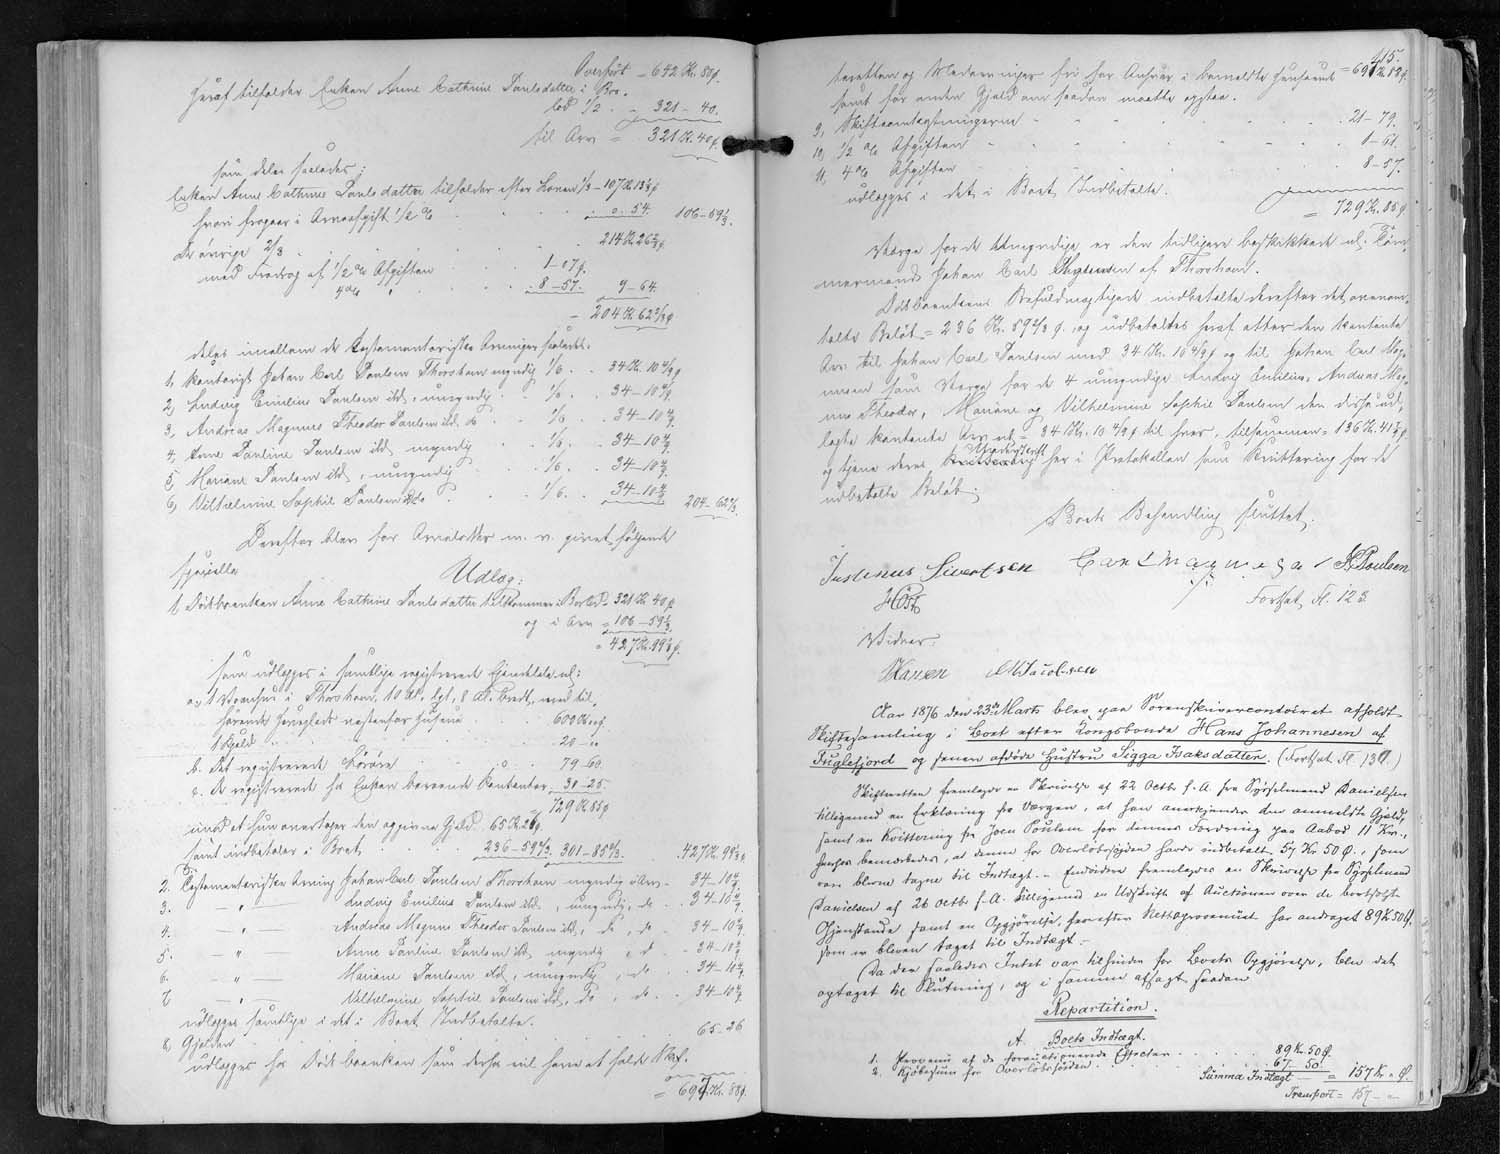 Overført = 642 Kr. 80 ø.
Heraf tilfalder Enken Anne Cathrine Poulsdatter i Bos-
lod 1/2 . . 321 - 40.
til Arv = 321 Kr. 40 ø.
som deles saaledes:
Enken Anne Cathrine Poulsdatter tilfalder efter Loven 1/3 - 107 Kr 13 1/3 ø
hvori fragaar i Arveafgift 1/2 % . . . 0 - 54. 106 - 59 1/3.
De øvrige 2/3 . . . 214 Kr. 26 2/3 ø.
med Fradrag af 1/2 % Afgiften . . 1 - 07 ø.
4 % " . . 8 - 57. 9 - 64.
= 204 Kr. 62 2/3 ø
deles imellem de testamentariske Arvinger saaledes:
1, Kontorist Johan Carl Poulsen Thorshavn myndig 1/6 . . 34 Kr. 10 4/9 ø
2, Ludvig Emilius Poulsen ibd., umyndig . 1/6 . . 34 - 10 4/9.
3, Andreas Magnus Theodor Poulsen ibd. do . 1/6 . . 34 - 10 4/9.
4, Anne Pauline Poulsen ibd myndig . . 1/6. . 34 - 10 4/9
5, Mariane Poulsen ibd, umyndig . . 1/6. . 34 - 10 4/9
6, Vilhelmine Sophie Poulsen ibd do . . 1/6. . 34 - 10 4/9 204 - 62 2/3.
Derefter blev for Arvelodder m. v. givet følgende
specielle
Udlæg:
1. Enken Anne Cathrine Poulsdatter tilkommer i Boslod = 321 Kr. 40 ø
og i Arv = 106 - 59 1/3.
= 427 Kr. 99 1/3 ø.
som udlægges i samtlige registrerede Eiendele nl:
a, 1 Vaanhus i Thorshavn, 10 Al. lgt., 8 Al. bredt, med til-
hørende næstenfor Husene . . . 600 Kr. " ø.
1 Kjeld . . . 20 - "
b. Det registrerede . . . 79 - 60.
c. De registrerede hos Enken beroende Contanter . 30 - 25.
729 Kr 85 ø
imod at hun overtager den opgivne Gjæld . 65 Kr. 26 ø.
samt indbetaler i Boet . . 236 - 59 2/3. 301 - 85 2/3. . 427 Kr. 99 1/3 ø.
2. Testamentariske Arving Johan Carl Poulsen Thorshavn myndig i Arv - 34 - 10 4/9.
3. - " - Ludvig Emilius Poulsen ibd., umyndig, do . . 34 - 10 4/9.
4. - " - Andreas Magnus Theodor Poulsen ibd., do, do . 34 - 10 4/9.
5. - " - Anne Pauline Poulsen ibd myndig, d . 34 - 10 4/9.
6. - " - Mariane Poulsen ibd, umyndig, do . . 34 - 10 4/9.
7 - " - Vilhelmine Sophie Poulsen ibd, do, do . . 34 - 10 4/9.
udlægges samtlige i det i Boet Indbetalte.
8, Gjælden . . . 65 - 26
udlægges hos Enken som derfor vil have at holde Skif-
= 697 Kr. 88 ø.
115.
teretten og Medarvinger fri for Ansvar i bemeldte Henseende = 697 Kr. 88 ø.
samt for anden Gjæld om saadan maatte opstaa.
9, Skifteomkostningerne . . . 21 - 79.
10, 1/2 % Afgiften . . . 1 - 61.
11, 4 % Afgiften . . . 8 - 57.
udlægges i det i Boet Indbetalte.
= 729 Kr. 85 ø
Værge for de Umyndige er den tidligere beskikkede nl. Tøm-
mermand Johan Carl af Thorshavn.
Befuldmægtigede indbetalte derefter det ovenom-
talte Beløb = 236 Kr. 59 2/3 ø., og udbetaltes heraf efter den kontante
Arv til Johan Carl Poulsen med 34 Kr. 10 4/9 ø og til Johan Carl Mag-
nusen som Værge for de 4 umyndige Ludvig Emilius, Andreas Mag-
nus Theodor, Mariane og Vilhelmine Sophie Poulsen den disse ud-
lagte kontante Arv nl = 34 Kr. 10 4/9 ø til hver, tilsammen = 136 Kr. 41 7/9 ø.
og tjene deres Underskrift her i Protokollen som Kvittering for de
udbetalte Beløb.
Boets Behandling sluttet.
Justinus Sivertsen Carl Magnusen / J. C. Poulsen
Høst Fortsat Fl. 123.
Vidner:
Hansen M. Jacobsen
Aar 1876 den 23de Marts blev paa Sorenskrivercontoiret afholdt
Skiftesamling i Boet efter Kongsbonde Hans Johannesen af
Fuglefjord og senere afdøde Hustru Sigga Isaksdatter. (Fortsat Fl. 130.)
Skifteretten fremlagde en Skrivelse af 22 Octbr f. A. fra Sysselmand Danielsen
tilligemed en Erklæring fra Værgen, at han anerkjender den anmeldte Gjæld,
samt en Kvittering fra Joen Poulsen for dennes Fordring paa Aabod 11 Kr.,
hvorhos bemærkedes, at denne for Overløbsjorden havde indbetalt 57 Kr 50 Ø., som
vare blevne tagne til Indtægt. - Endvidere fremlagdes en Skrivelse fra Sysselmand
Danielsen af 26 Octbr f. A. tilligemed en Udskrift af Auctionen over de bortsolgte
Gjenstande samt en Opgjørelse, hvorefter Nettoprovenuet har andraget 89 Kr 50 Ø,
som er bleven taget til Indtægt. -
Da der saaledes Intet var til hinder for Boets Opgjørelse, blev det
optaget til Slutning, og i samme afsagt saadan
Repartition.
A. Boets Indtægt.
1. Provenu af de forauctionerede Effecter . . . 89 Kr. 50 Ø.
2. Kjøbesum for Overløbsjorden . . . 67 - 50.
Summa Indtægt = 157 Kr " Ø.
Transport = 157 - "